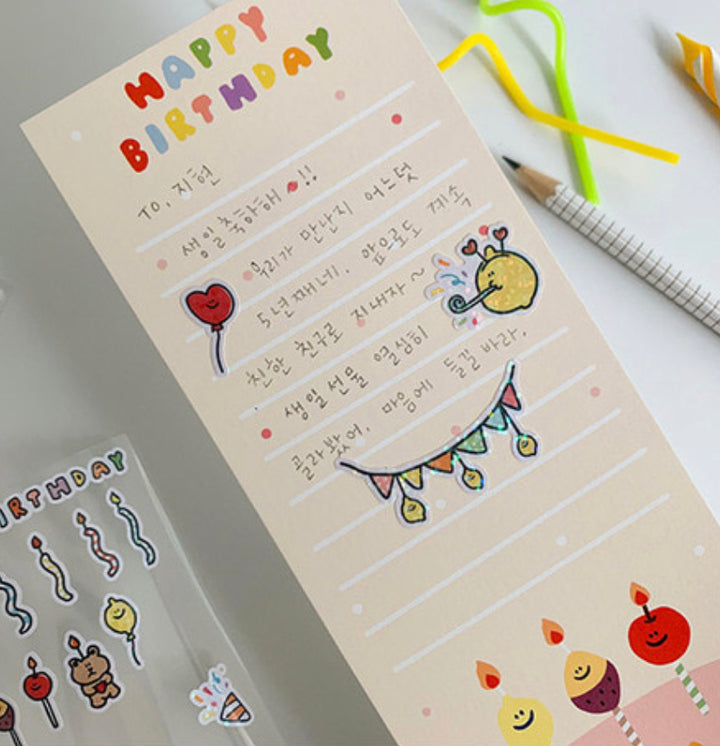 HAPPY
BIRTHDAY
TO. 지현
생일 축하해!!
우리가 만난지 어느덧
5년째네. 앞으로도 계속
친한 친구로 지내자~
생일선물 열심히
골라봤어. 마음에 들길 바라.
IRTHDAY